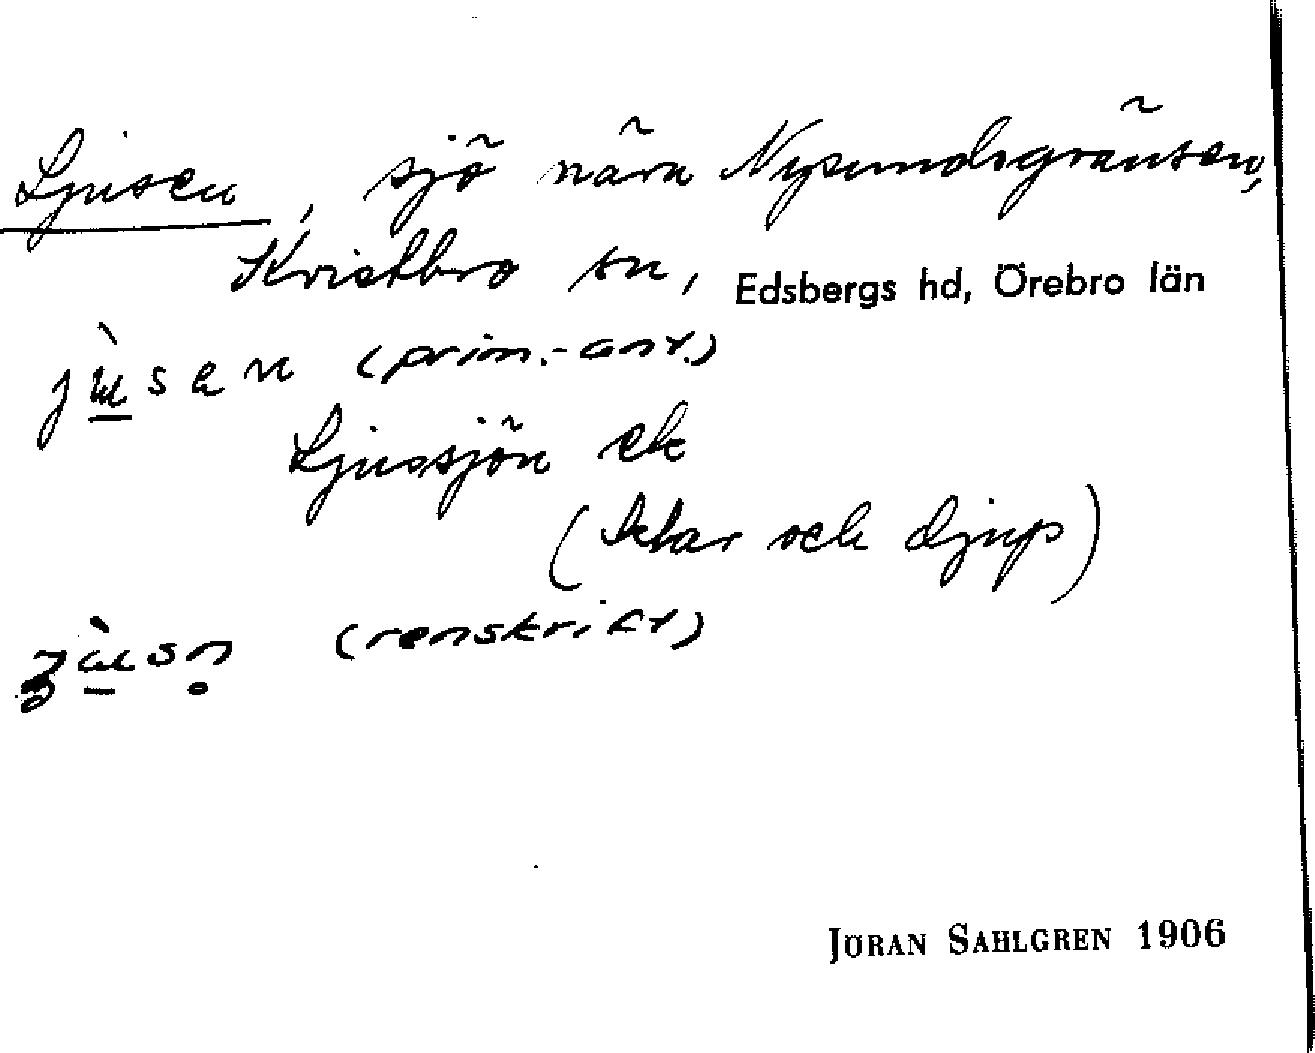 Ljusen, sjö nära Nysundsgränsen,
Kvistbro sn, Edsbergs hd, Örebro län
jùsen (prim.-ant.)
Ljussjön ek
(klar och djup)
jùsn̥ (renskrift)
JÖRAN SAHLGREN 1906